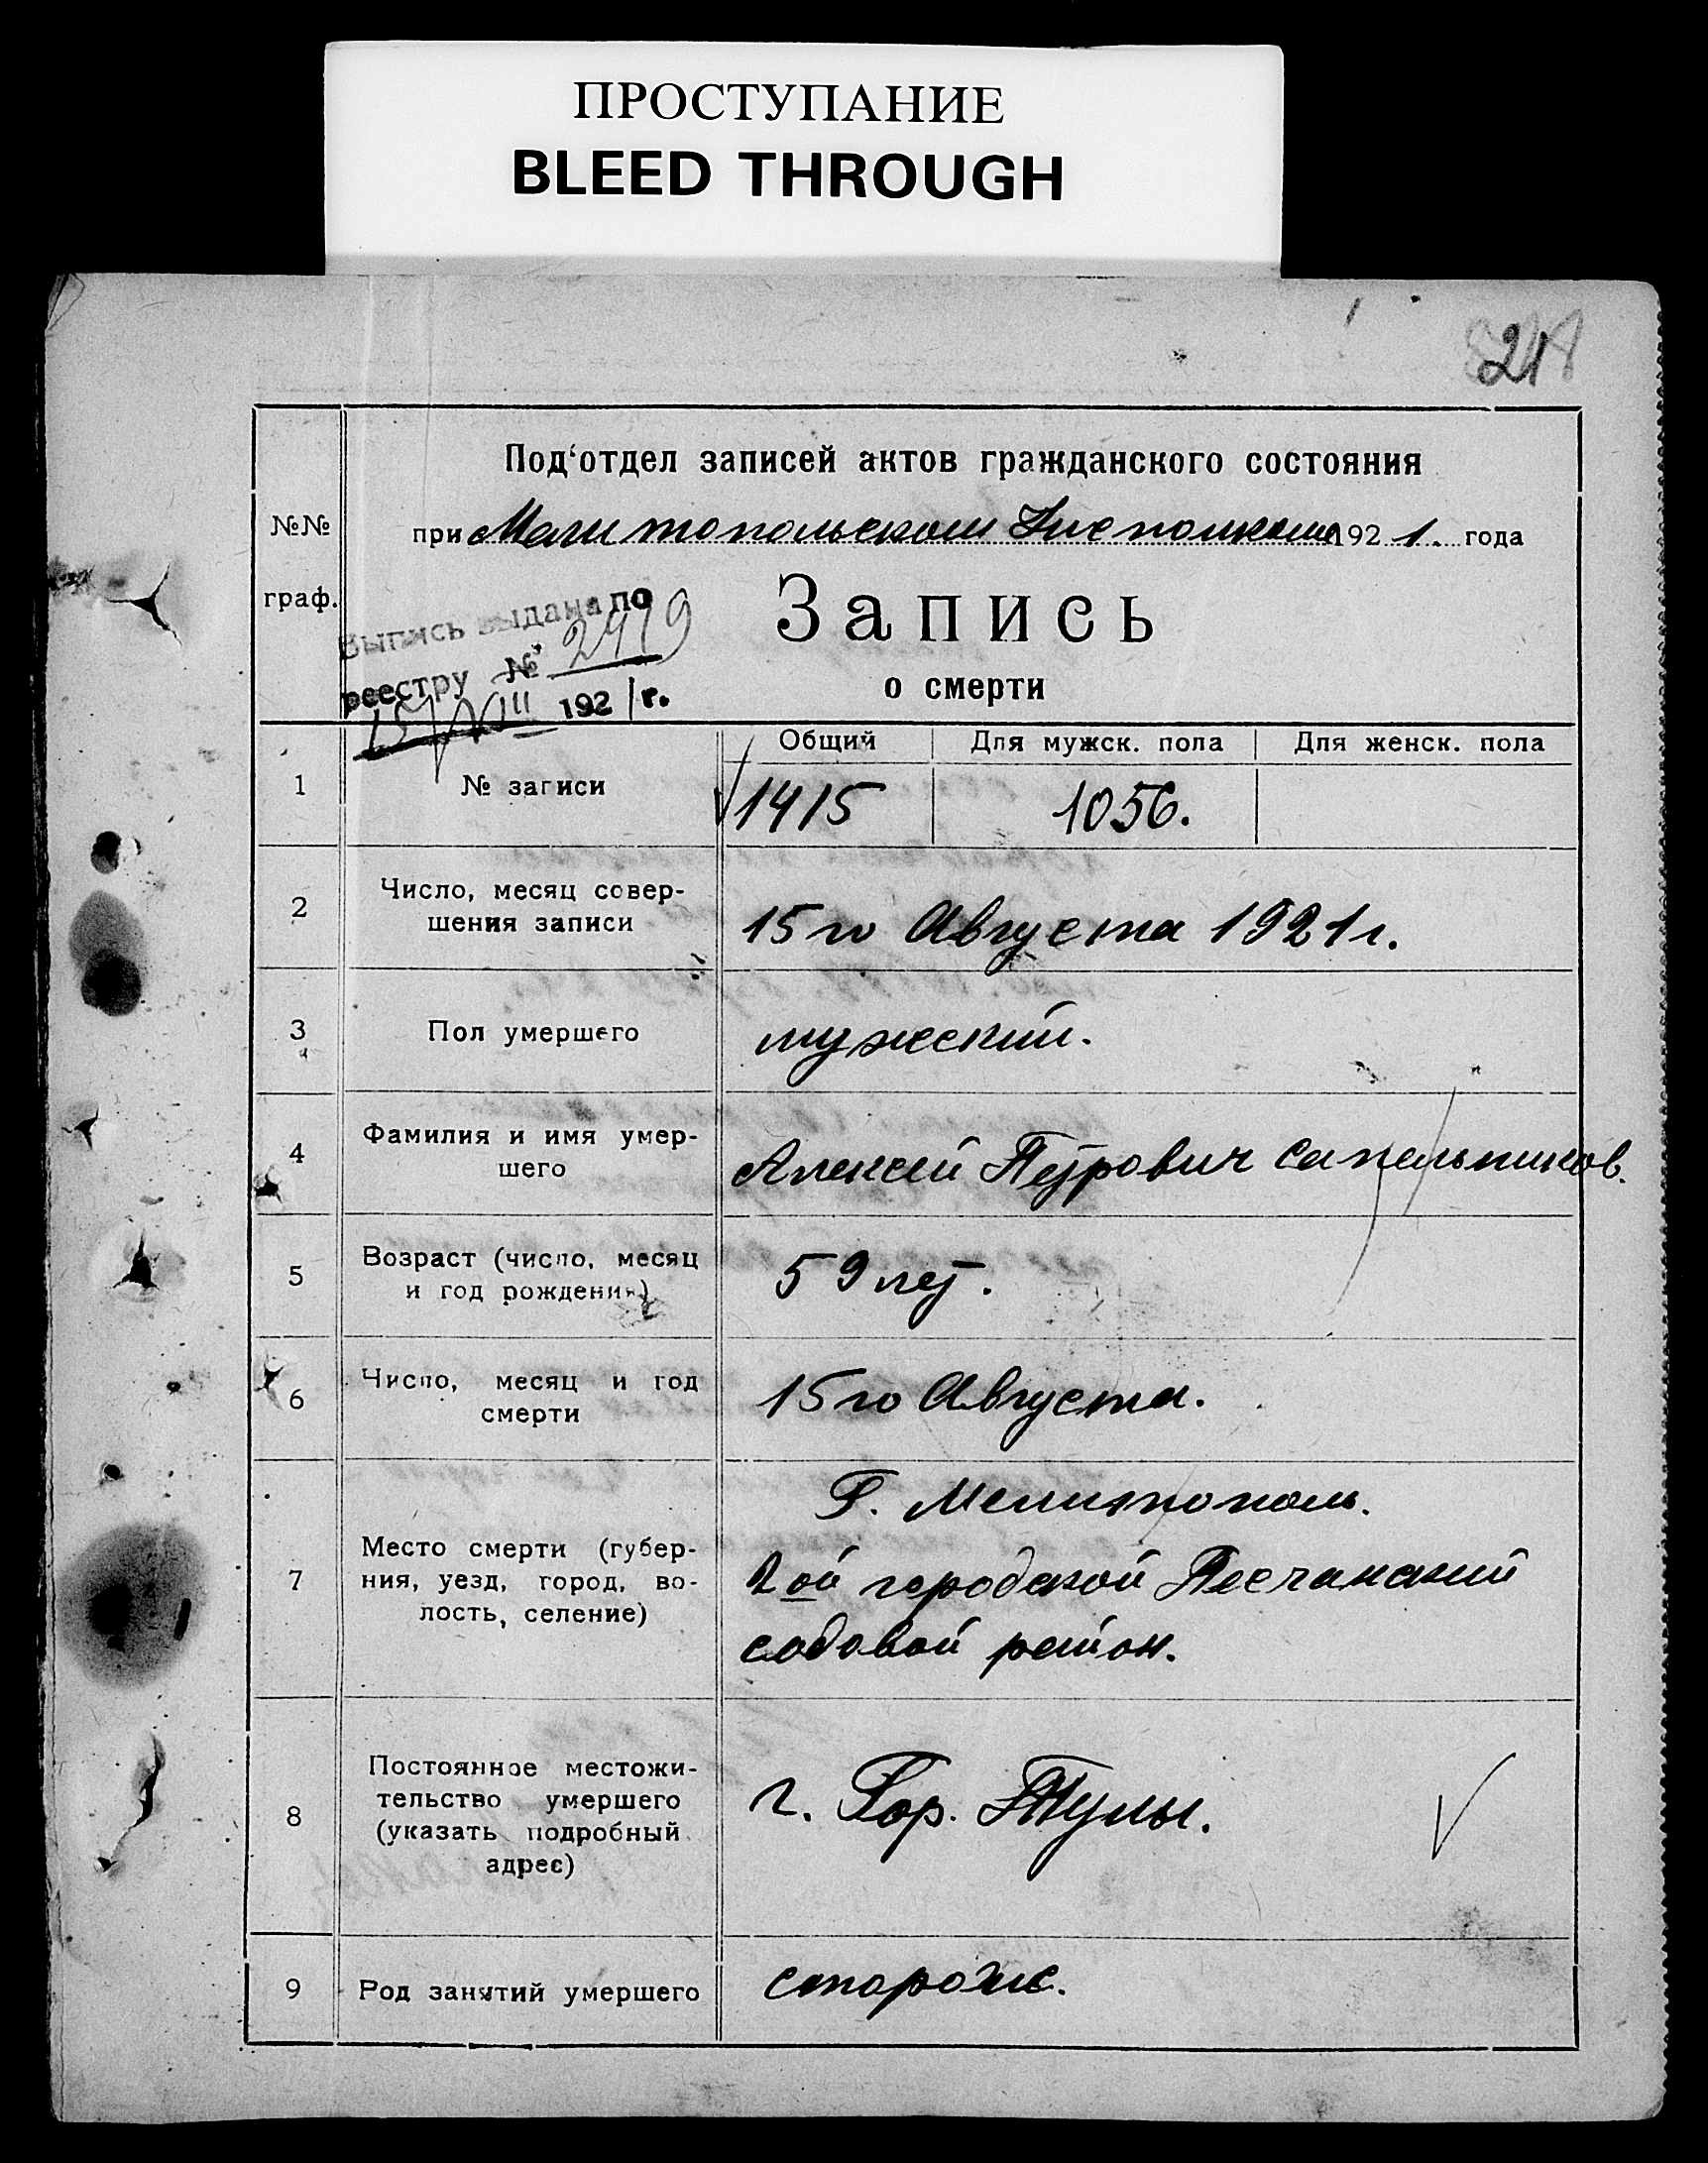 ПРОСТУПАНИЕ
BLEED THROUGH
21
Под'отдел записей актов гражданского состояния
№№
граф.
при Мелитопольском Исполкоме 1921. года
Запись
о смерти
Выпись выдана по
реестру № 2419
15/VIII 1921 г.
Общий Для мужск. пола Для женск. пола
1 № записи 1415 1056.
2 Число, месяц совер-
шения записи
15го Августа 1921 г.
3 Пол умершего мужский.
4 Фамилия и имя умер-
шего
Алексей Петрович Сапельников.
5 Возраст (число, месяц
и год рождения)
59 лет.
6 Число, месяц и год
смерти
15го Августа.
7 Место смерти (губер-
ния, уезд, город, во-
лость, селение)
Г. Мелитополь.
2ой городской Песчанский
садовой район.
8 Постоянное местожи-
тельство умершего
(указать подробный
адрес)
г. Гор. Тулы.
9 Род занятий умершего сторож.